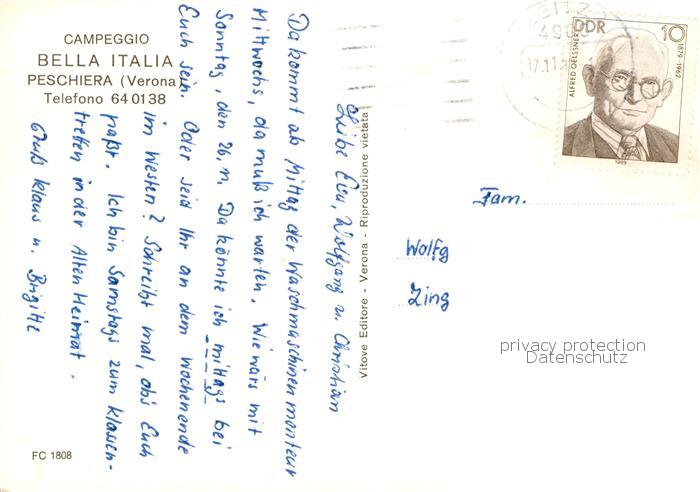 CAMPEGGIO
BELLA ITALIA
PESCHIERA (Verona)
Telefono 640138
Liebe Eva, Wolfgang u. Christian
Da kommt ab Mittag der Waschmaschinenmonteur
Mittwochs, da muß ich warten. Wie wärs mit
Sonntag, den 26.11. Da könnte ich mittags bei
Euch sein. Oder seid Ihr an dem Wochenende
im Westen? Schreibt mal, ob's Euch
paßt. Ich bin Samstags zum Klassen-
treffen in der Alten Heimat.
Gruß Klaus u. Brigitte
FC 1808
Vitove Editore - Verona - Riproduzione vietata
EITZ
490
17.11.
DDR
10
ALFRED OELSSNER
1879-1962
1989
Fam.
Wolfg
Zing
privacy protection
Datenschutz